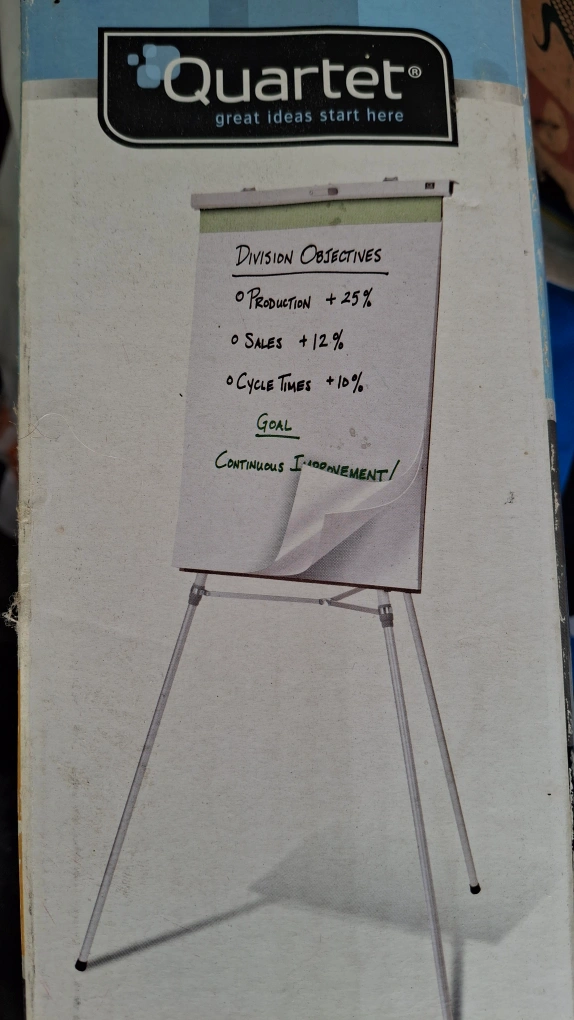 Quartet®
great ideas start here
DIVISION OBJECTIVES
o PRODUCTION +25%
o SALES +12%
o CYCLE TIMES +10%
GOAL
CONTINUOUS IMPROVEMENT!